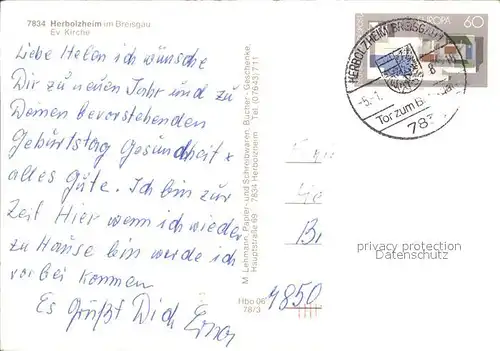 7834 Herbolzheim im Breisgau
Ev. Kirche
Liebe Helen ich wünsche
Dir zu neuen Jahr und zu
Deinen bevorstehenden
Geburtstag Gesundheit +
alles Gute. Ich bin zur
Zeit Hier wenn ich wieder
zu Hause bin werde ich
vorbei kommen
Es grüßt Dich Erna
M. Lehmann, Papier- und Schreibwaren, Bücher - Geschenke,
Hauptstraße 69 7834 Herbolzheim Tel. (07643) 711
Hbo 06
78/3
EUROPA 60
HERBOLZHEIM, BREISGAU
-5.-1.
8
Tor zum
783
Bi
4850
privacy protection
Datenschutz